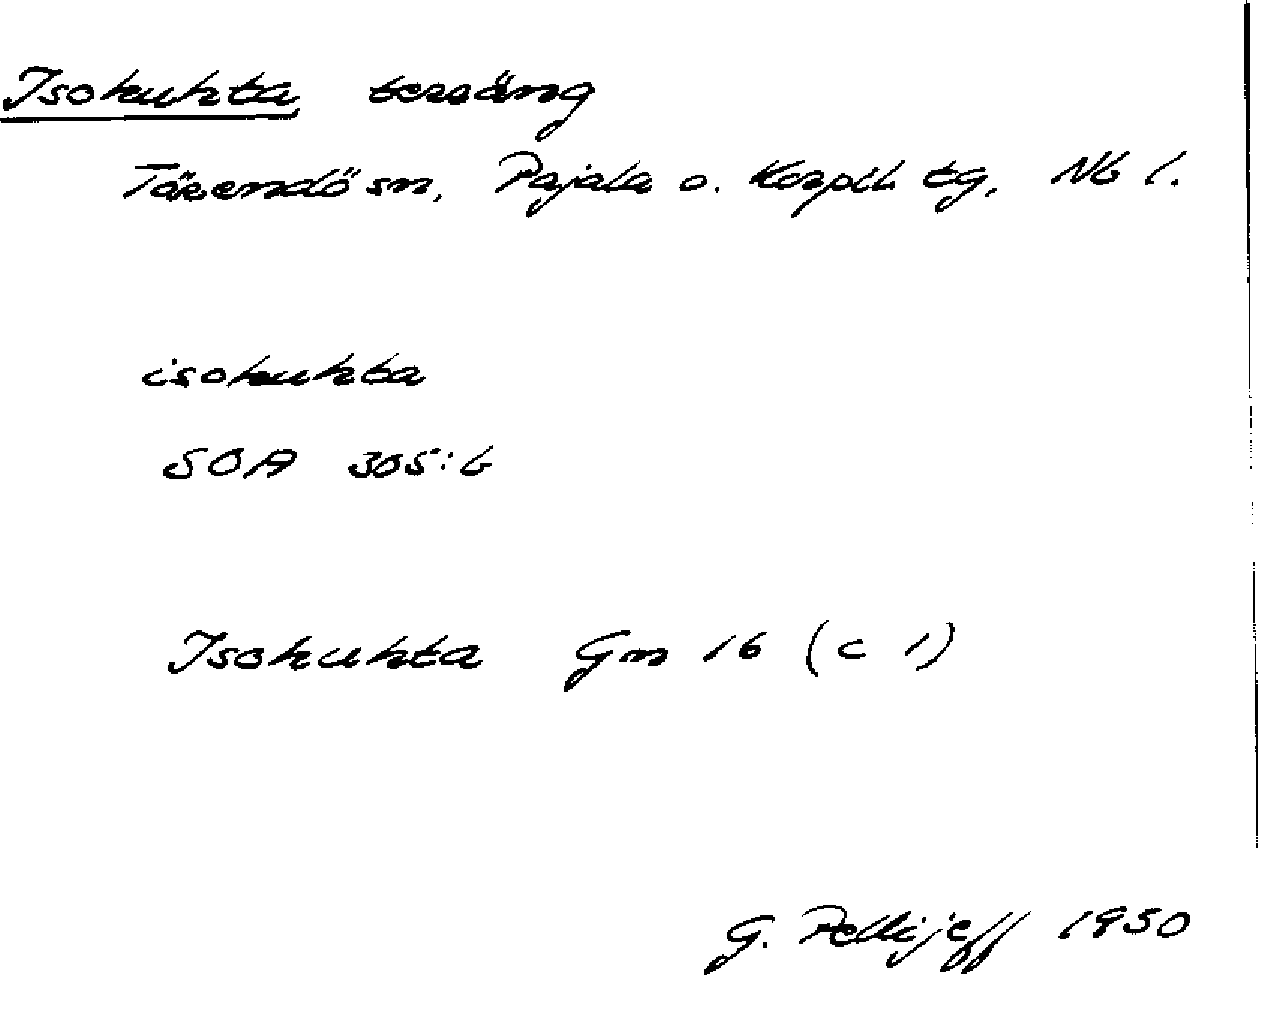 Isokuhta teräng
Tärendö sn, Pajala o. Korpil. tg, Nb l.
isokuhta
SOA 305:6
Isokuhta Gm 16 (c 1)
G. Pellijeff 1950